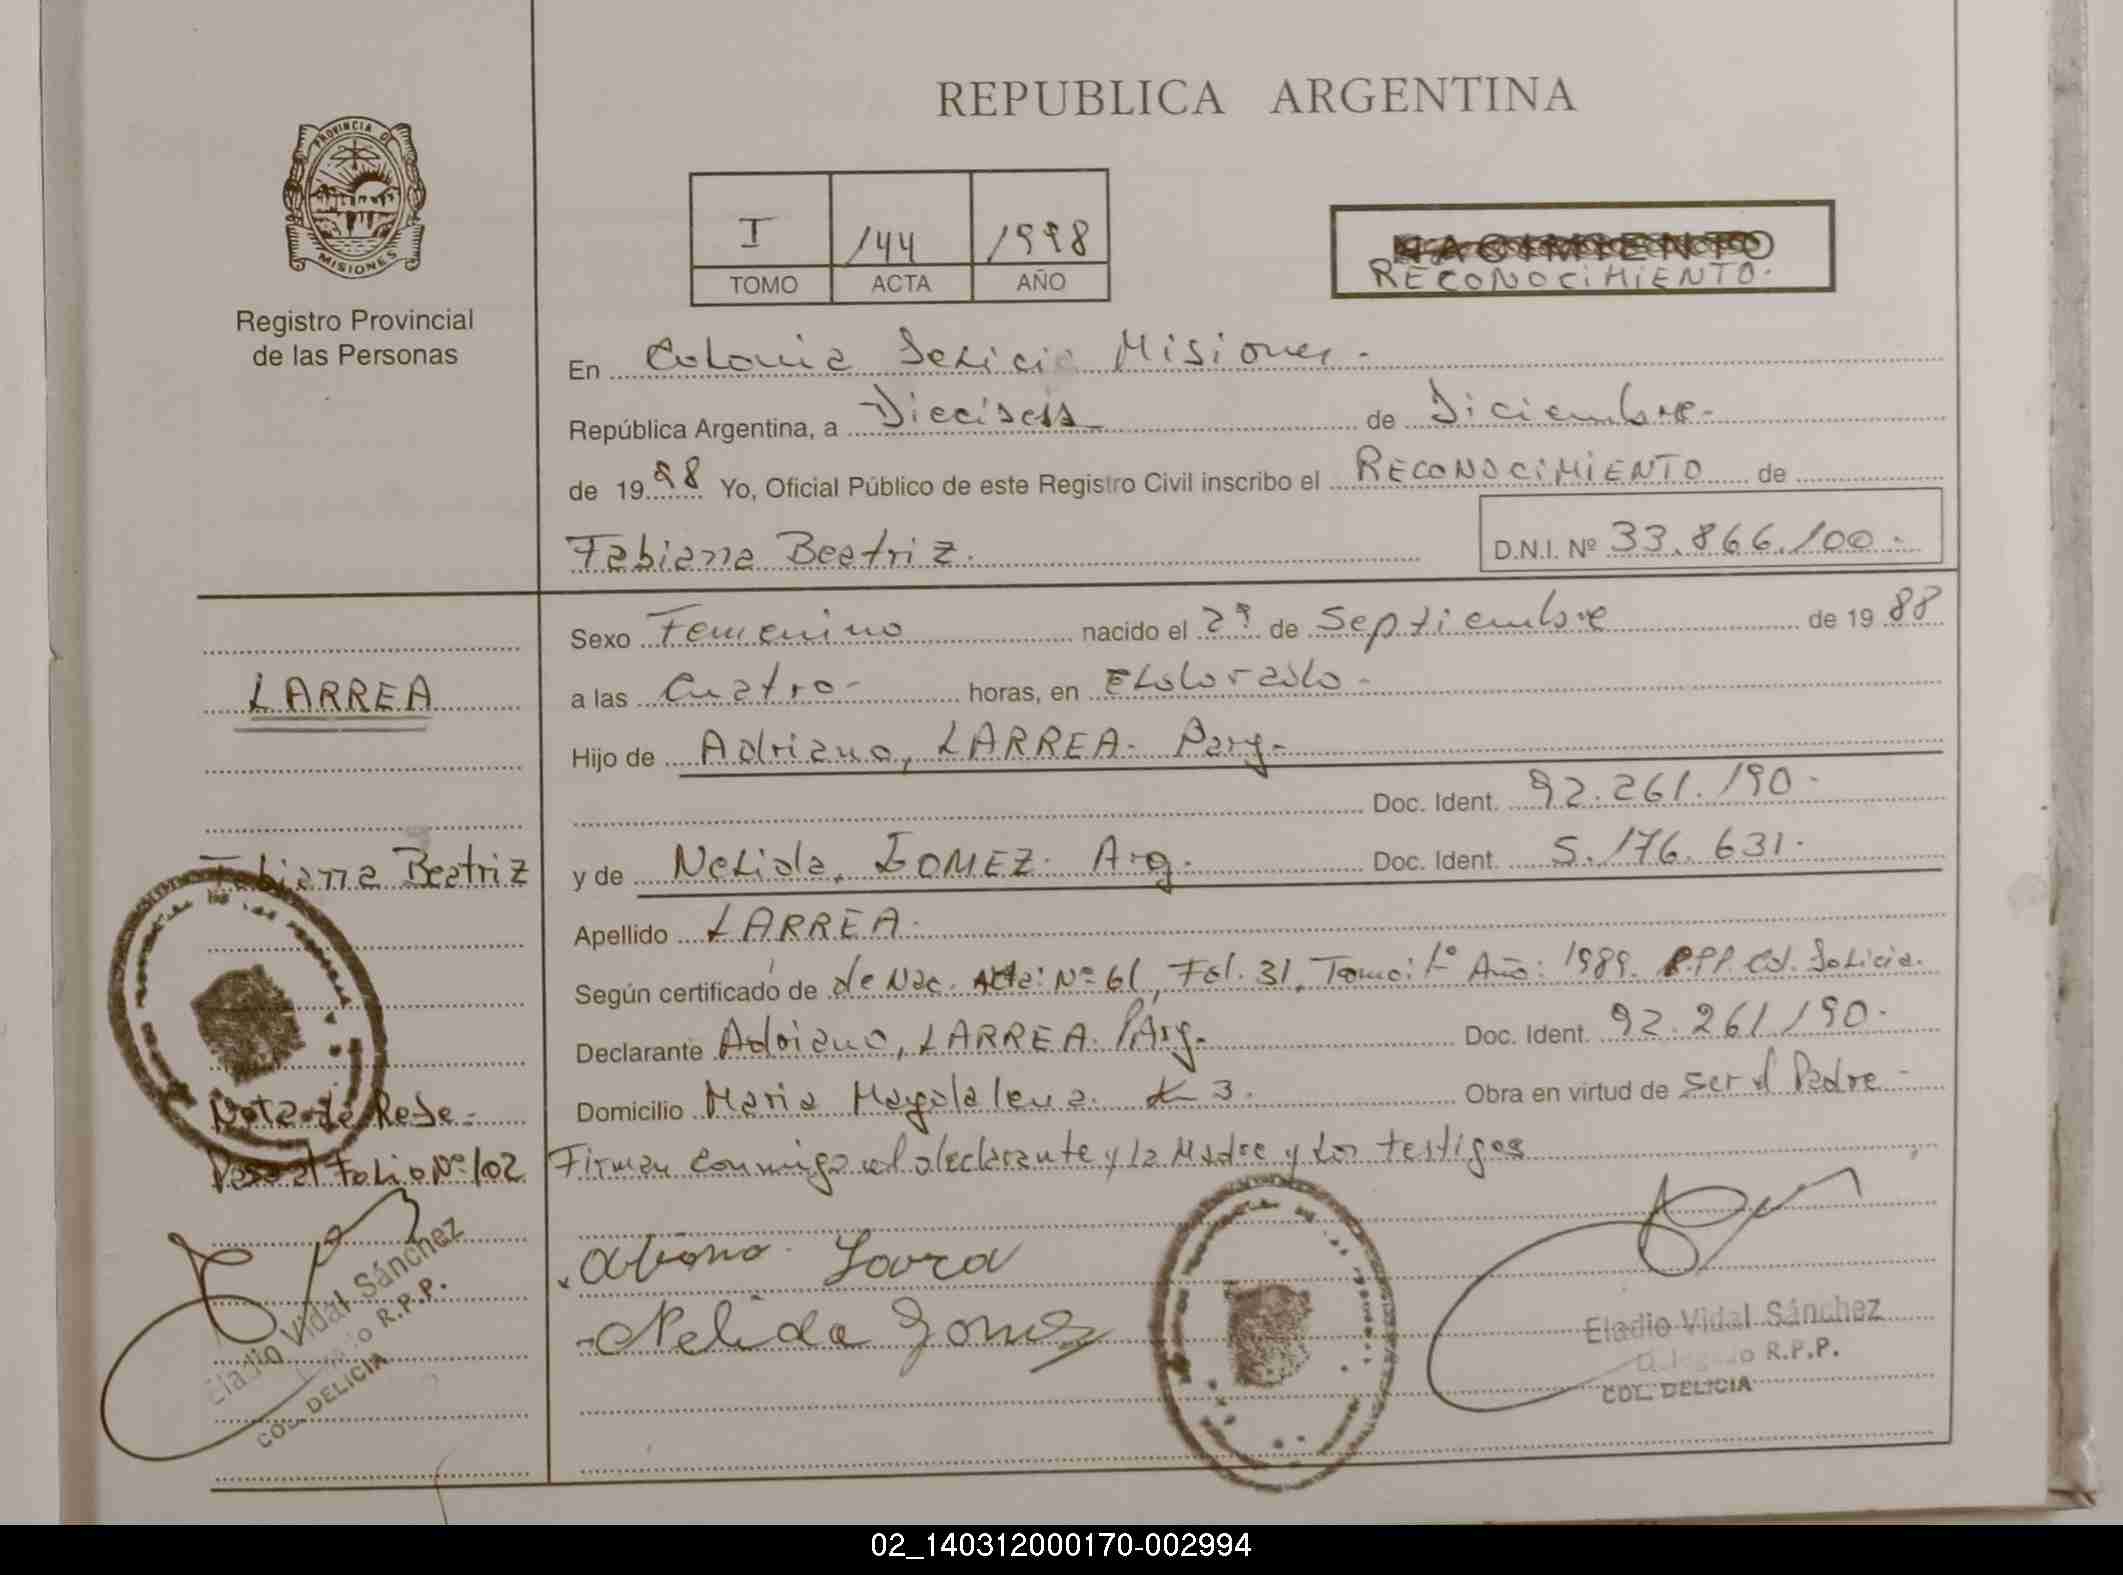 PROVINCIA DE
MISIONES
Registro Provincial
de las Personas
REPUBLICA ARGENTINA
I 144 1998
TOMO ACTA AÑO
NACIMIENTO
RECONOCIMIENTO.
En Colonia Delicia Misiones.
República Argentina, a Dieciseis de Diciembre.
de 1998 Yo, Oficial Público de este Registro Civil inscribo el RECONOCIMIENTO de
Fabiana Beatriz. D.N.I. Nº 33.866.100.
Sexo Femenino nacido el 29 de Septiembre de 1988
a las Cuatro- horas, en Eldorado.
Hijo de Adriano, LARREA. Parg.
Doc. Ident. 92.261.190.
y de Nelida, GOMEZ. Arg. Doc. Ident. 5.176.631.
Apellido LARREA.
Según certificado de de Nac. Acta: Nº 61, Fol. 31, Tomo: 1º Año: 1989. R.P.P. Col. Delicia.
Declarante Adriano, LARREA. Doc. Ident. 92.261.190.
Domicilio Maria Magdalena. K 3. Obra en virtud de ser el Padre
Firman conmigo el declarante y la Madre y los testigos
LARREA
Fabiana Beatriz
Nota de Refe.
Pasa al Folio Nº 102
Eladio Vidal Sánchez
R.P.P.
COL. DELICIA
Nelida Gomez
Eladio Vidal Sánchez
Delegado R.P.P.
COL. DELICIA
02_140312000170-002994